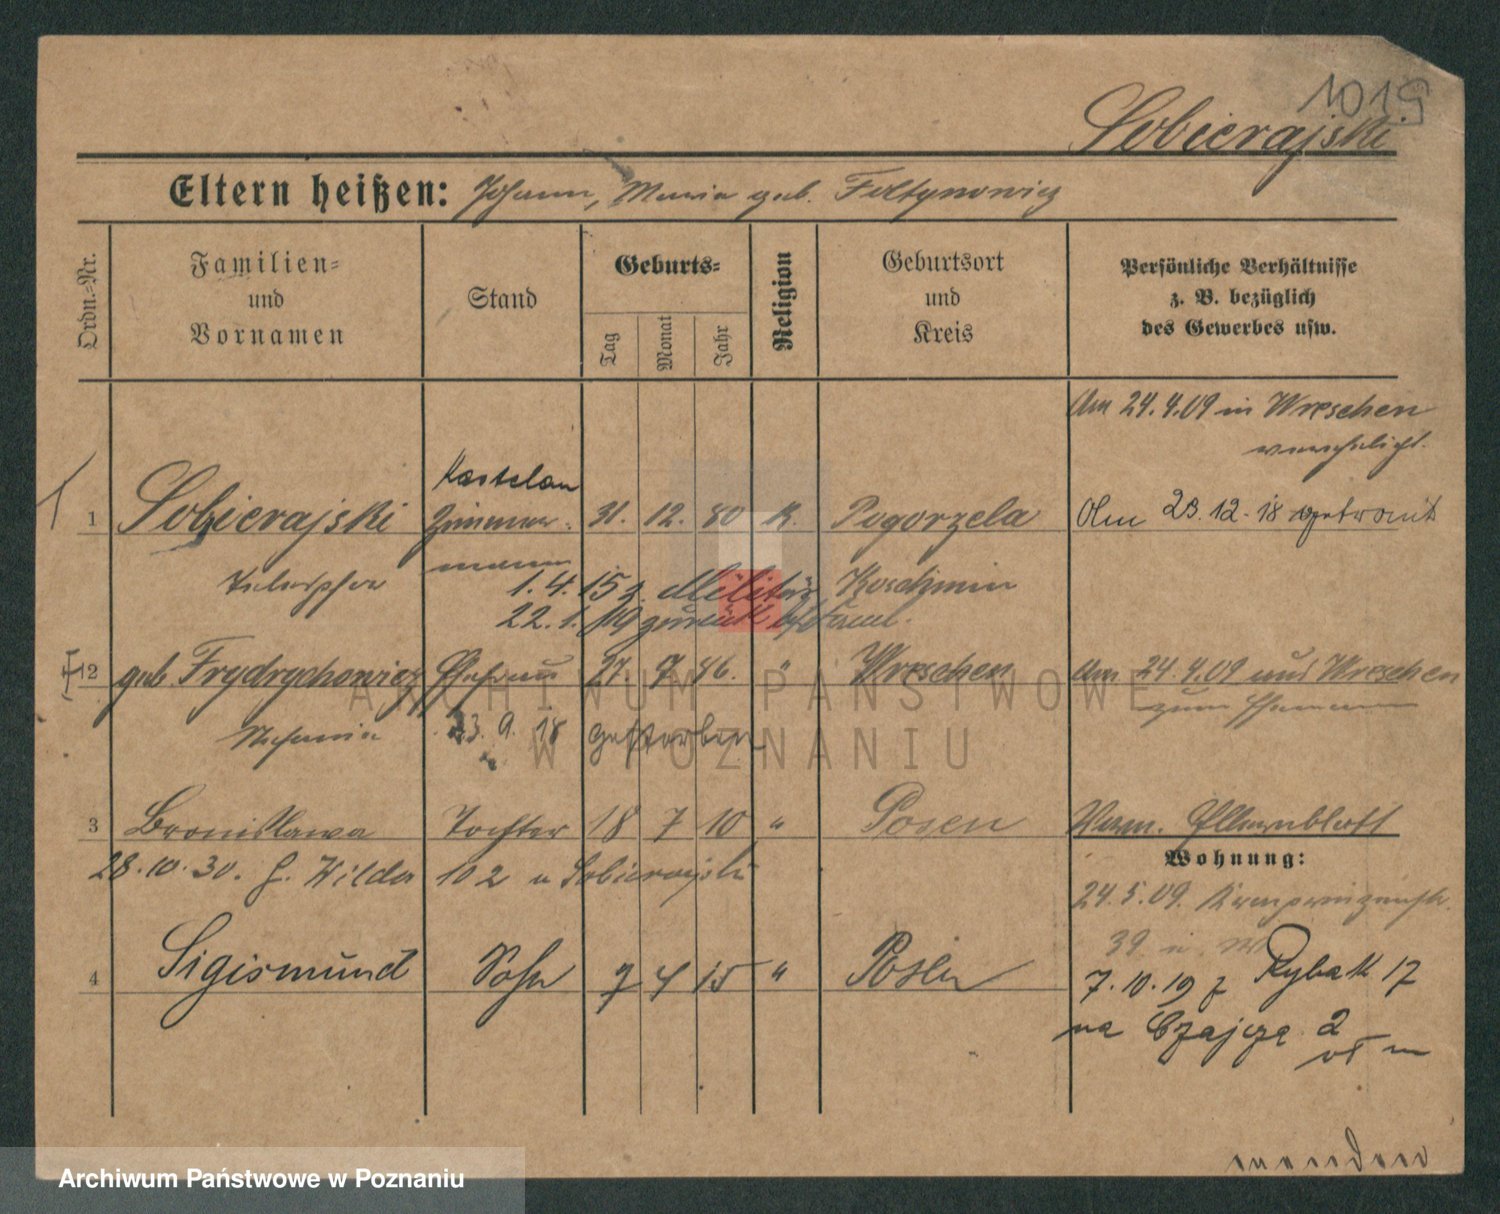 1019
Sobierajski
Eltern heißen: Johann, Maria geb. Feltynowicz
Ordn.-Nr.
Familien-
und
Vornamen
Stand
Geburts-
Tag
Monat
Jahr
Religion
Geburtsort
und
Kreis
Persönliche Verhältnisse
z. B. bezüglich
des Gewerbes usw.
Am 24.4.09 in Wreschen
verehelicht.
Kastelan
1 Sobierajski Zimmer- 31. 12. 80 K. Pogorzela Am 23.12.18
mann
Telesphor 1.4.15 z. Militär Koschmin
22.1.19 zurück
2 geb. Frydrychowicz Ehefrau 27. 7 86. " Wreschen Am 24.4.09 und Wreschen
zum Ehemann
Stefania 23.9.18 gestorben
3 Bronislawa Tochter 18 7 10 " Posen Verm.
28.10.30. Wilda 102 u Sobierajski
Wohnung:
24.5.09. Kronprinzenstr.
39
4 Sigismund Sohn 7 4 15 " Posen
7.10.19 z Rybak 17
na Czajcza 2
ARCHIWUM PAŃSTWOWE
W POZNANIU
Archiwum Państwowe w Poznaniu